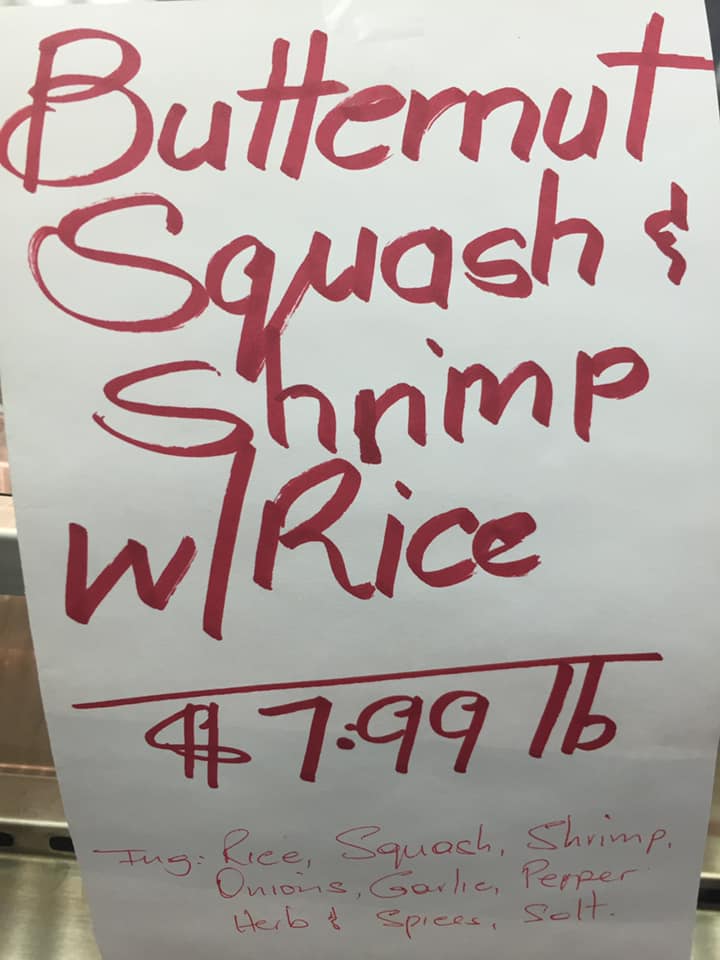 Butternut
Squash &
Shrimp
w/Rice
$7.99 lb
Ing: Rice, Squash, Shrimp,
Onions, Garlic, Pepper
Herb & Spices, Salt.